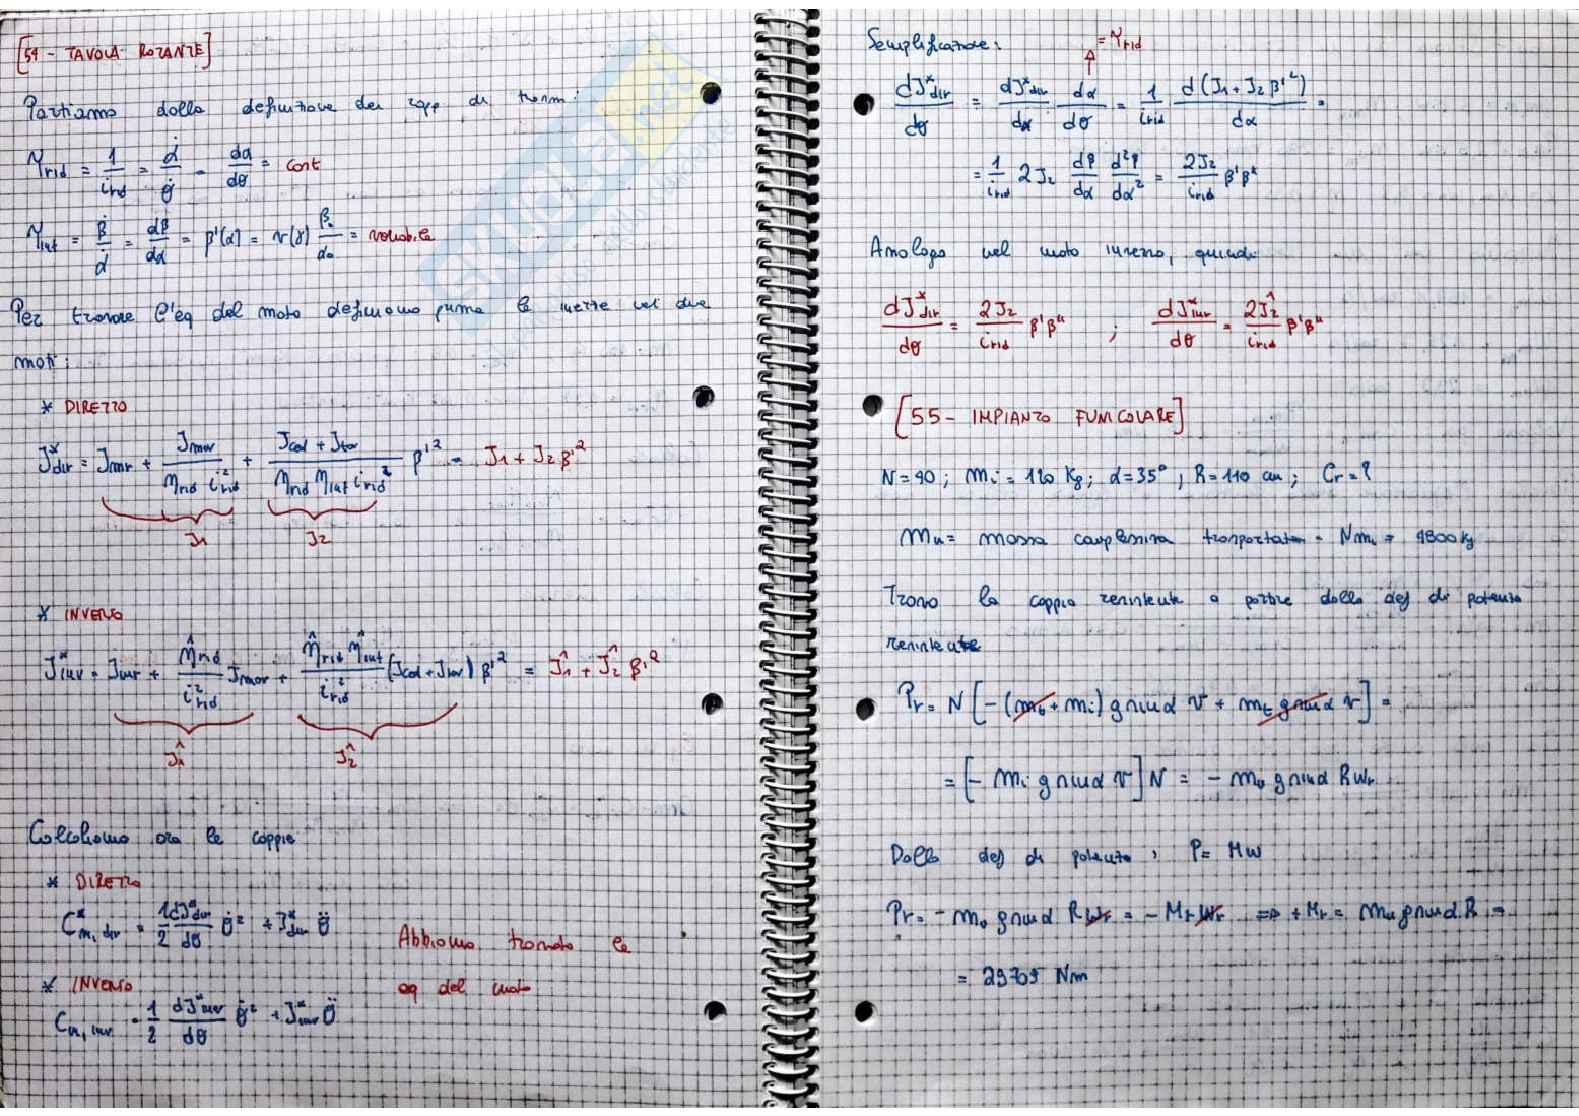 [54 - TAVOLA ROTANTE]
Partiamo dalla definizione dei rapp di trasm:
τrid = 1/irid = α̇/θ̇ = dα/dθ = cost
τint = β̇/α̇ = dβ/dα = β'(α) = v(γ) β₀/α₀ = variabile
Per trovare l'eq del moto definiamo prima le inerzie nei due
moti:
* DIRETTO
J*dir = Jmr + Jmov/(ηrid i²rid) + (Jcol + Jtav)/(ηrid ηint irid²) β'² = J1 + J2 β'²
J1 J2
* INVERSO
J*inv = Jmr + η̂rid/i²rid Jmov + η̂rid η̂int/i²rid (Jcol + Jtav) β'² = Ĵ1 + Ĵ2 β'²
Ĵ1 Ĵ2
Calcoliamo ora le coppie
* DIRETTO
C*m, dir = 1/2 dJ*dir/dθ θ̇² + J*dir θ̈
Abbiamo trovato le
eq del moto
* INVERSO
Cm, inv = 1/2 dJ*inv/dθ θ̇² + J*inv θ̈
Semplificazione:
= τrid
dJ*dir/dθ = dJ*dir/dα dα/dθ = 1/irid d(J1 + J2 β'²)/dα =
= 1/irid 2J2 dβ/dα d²β/dα² = 2J2/irid β'β"
Analogo nel moto inverso, quindi
dJ*dir/dθ = 2J2/irid β'β" ; dJ*inv/dθ = 2Ĵ2/irid β'β"
[55 - IMPIANTO FUNICOLARE]
N = 40 ; mi = 120 Kg ; α = 35° ; R = 110 cm ; Cr = ?
Mu = massa complessiva trasportata = Nmi = 4800 kg
Trovo la coppia resistente a partire dalla def di potenza
resistente
Pr = N [-(mt + mi) g sinα v + mt g sinα v] =
= [- mi g sinα v] N = - mu g sinα R ωr
Dalla def di potenza, P = Mω
Pr = - mu g sinα R ωr = - Mr ωr ⇒ + Mr = mu g sinα R =
= 29709 Nm